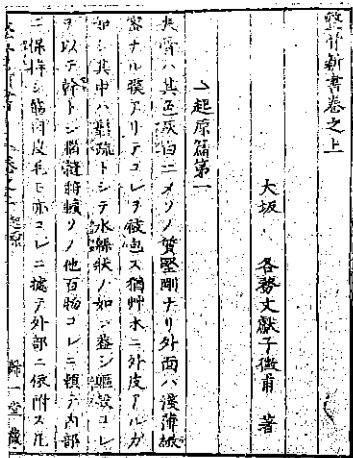 整骨新書巻之上
大坂 各務文獻子徴甫 著
起原篇第一
夫骨ハ其色灰白ニメソノ質堅剛ナリ外面ハ淺薄緻
密ナル膜アリテコレヲ被包ス猶艸木ニ外皮アルカ
如シ其中ハ鬆疏トシテ氷解状ノ如シ蓋シ軀殻コレ
ヲ以テ幹トシ腦髄ソノ他百物コレニ頼テ内部
ニ保存シ筋肉皮毛モ亦コレニ據テ外部ニ依附ス凡
歸一堂蔵